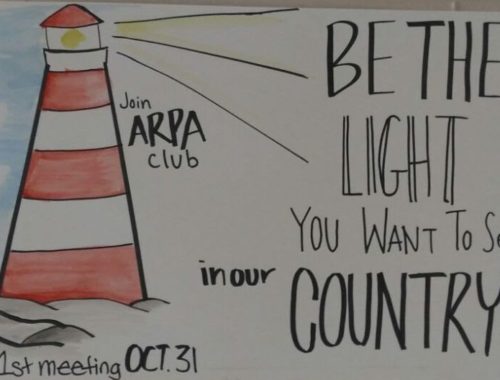 Join
ARPA
club
BE THE
LIGHT
YOU WANT TO
in our
COUNTRY
1st meeting OCT. 31